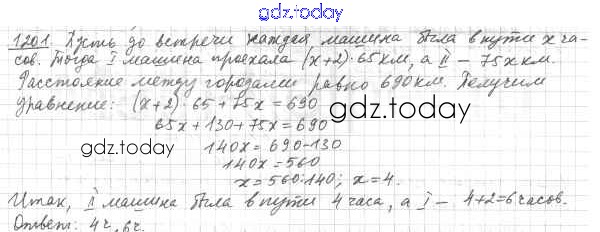 gdz.today
1201. Пусть до встречи каждая машина была в пути x ча-
сов. Тогда I машина проехала (x+2)·65 км, а II – 75x км.
Расстояние между городами равно 690 км. Получим
уравнение: (x+2)·65+75x=690
gdz.today
65x+130+75x=690
gdz.today
140x=690-130
140x=560
x=560:140; x=4.
Итак, II машина была в пути 4 часа, а I – 4+2=6 часов.
Ответ: 4ч, 6ч.
gdz.today